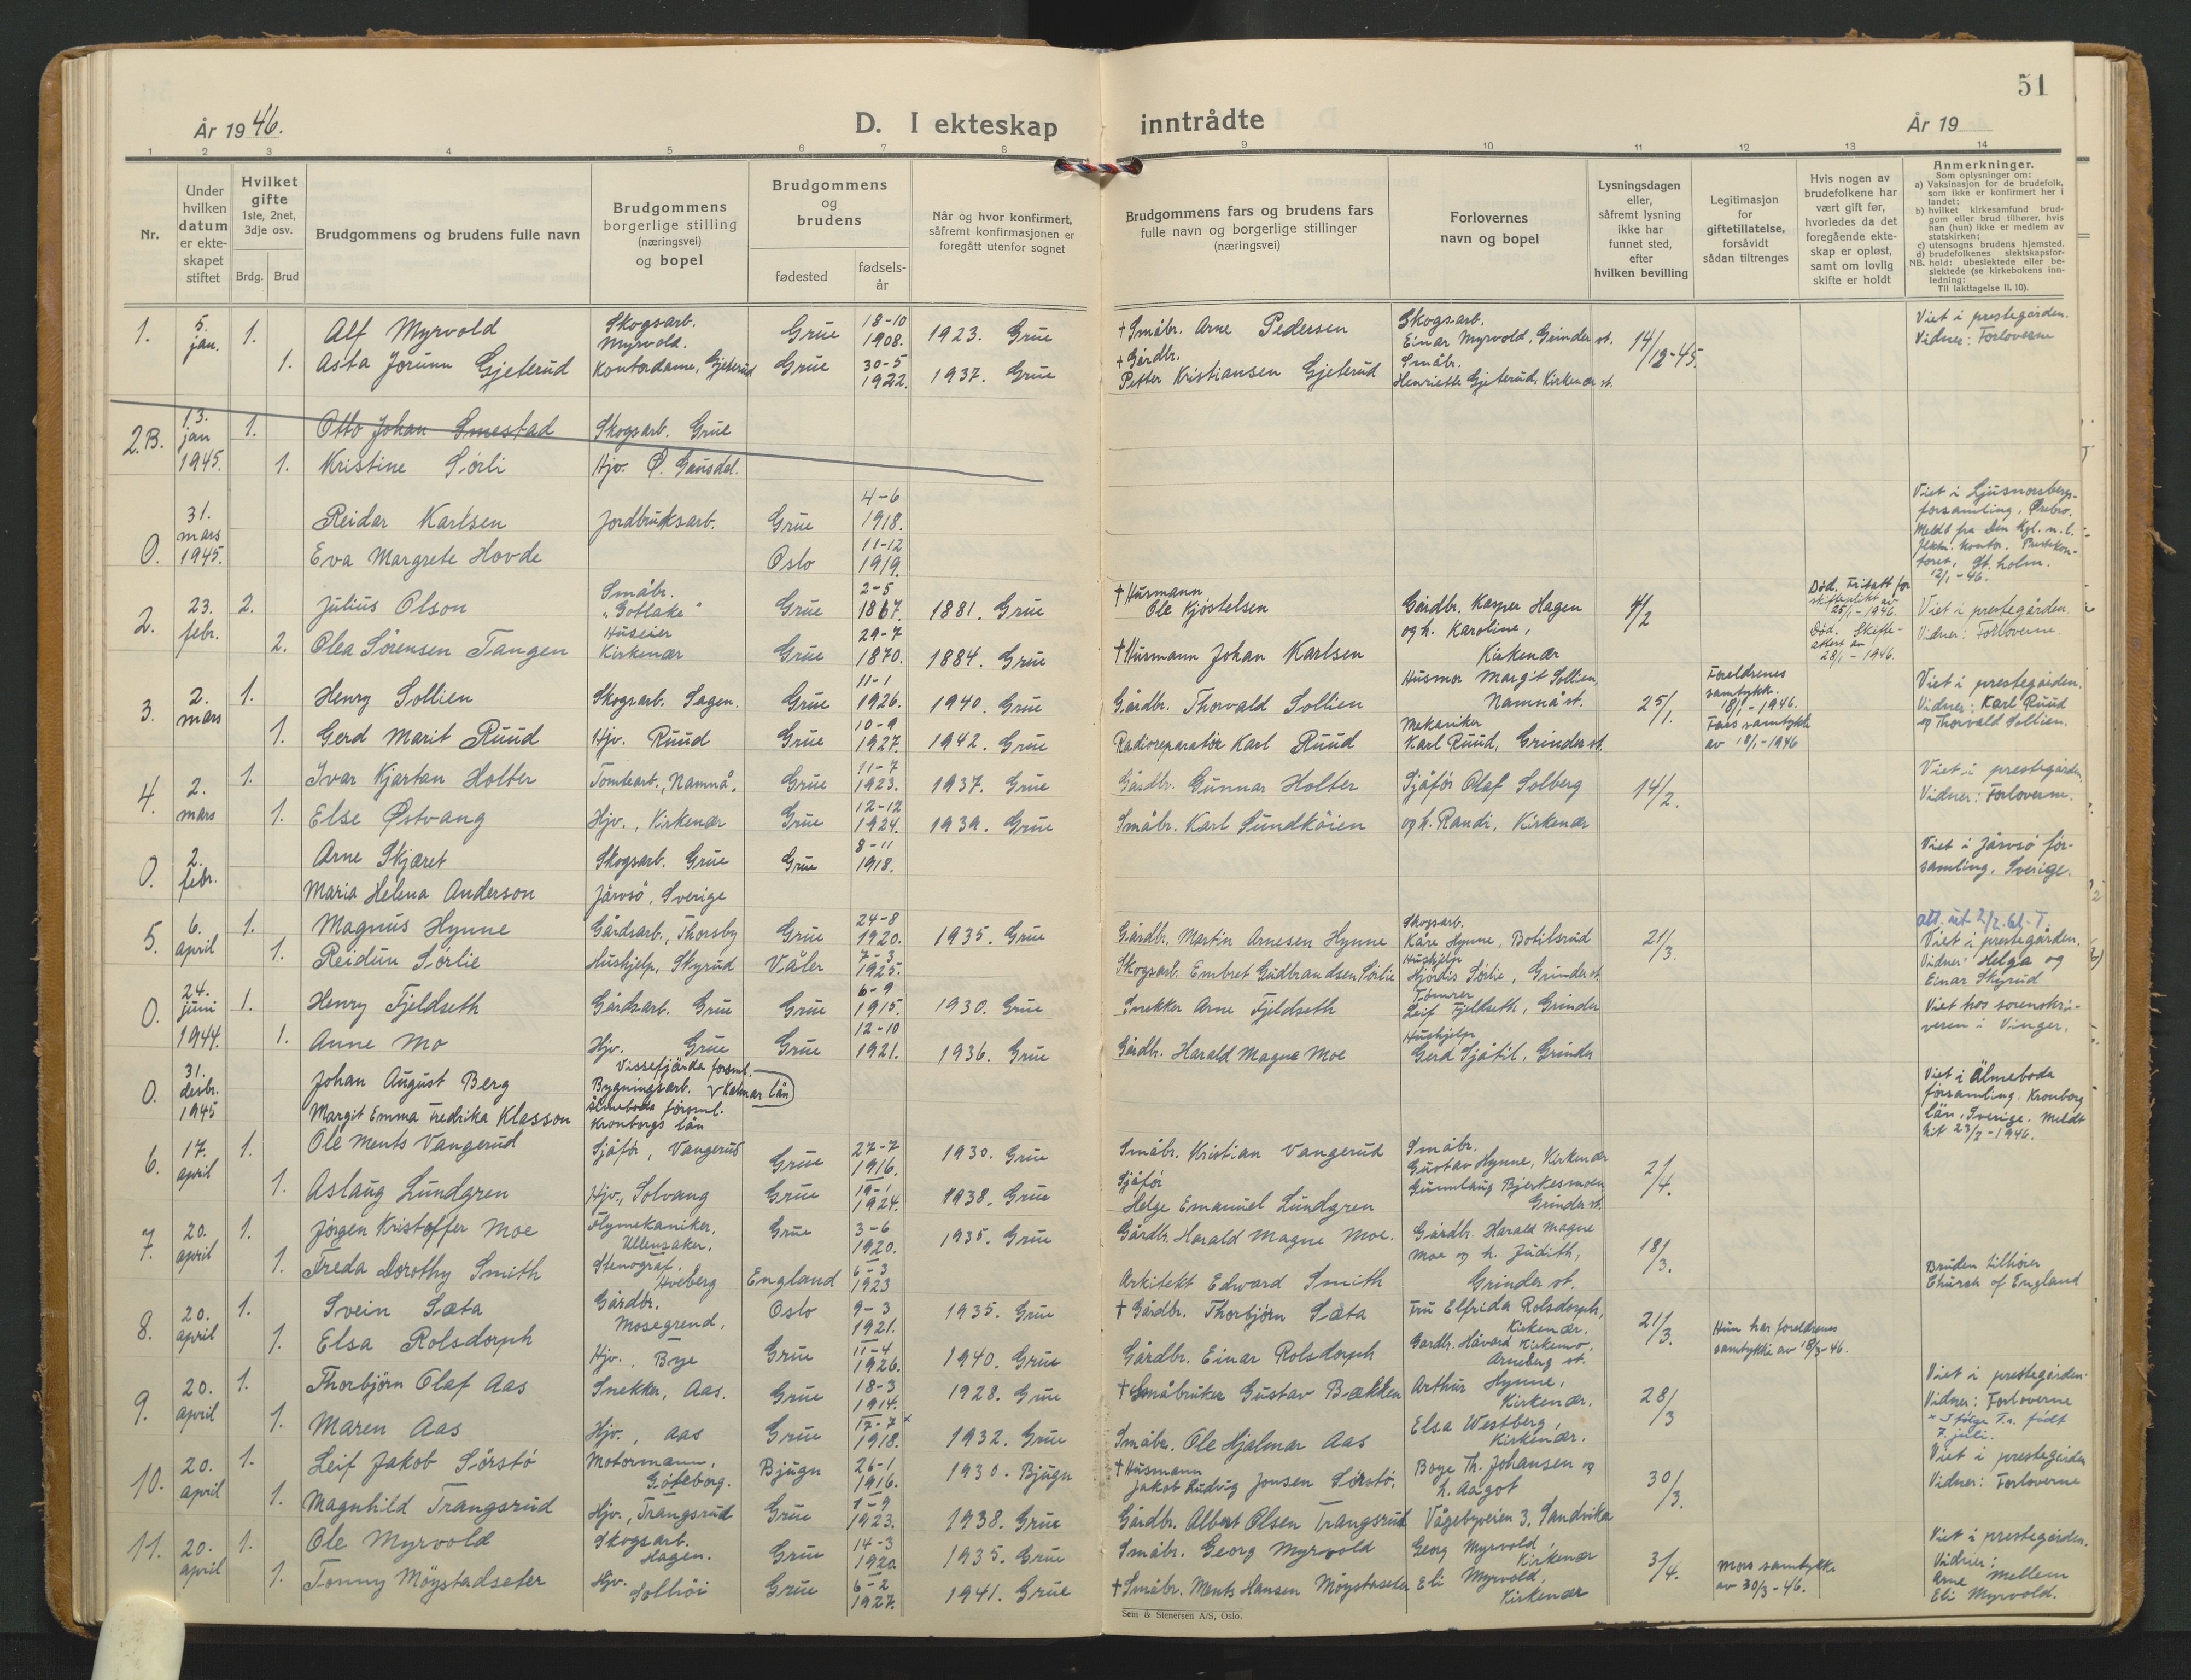 51
År 1946.
D. I ekteskap inntrådte
År 19
1 2 3 4 5 6 7 8 9 10 11 12 13 14
Nr.
Under
hvilken
datum
er ekte-
skapet
stiftet
Hvilket
gifte
1ste, 2net,
3dje osv.
Brdg. Brud
Brudgommens og brudens fulle navn
Brudgommens
borgerlige stilling
(næringsvei)
og bopel
Brudgommens
og
brudens
fødested
fødsels-
år
Når og hvor konfirmert,
såfremt konfirmasjonen er
foregått utenfor sognet
Brudgommens fars og brudens fars
fulle navn og borgerlige stillinger
(næringsvei)
Forlovernes
navn og bopel
Lysningsdagen
eller,
såfremt lysning
ikke har
funnet sted,
efter
hvilken bevilling
Legitimasjon
for
giftetillatelse,
forsåvidt
sådan tiltrenges
Hvis nogen av
brudefolkene har
vært gift før,
hvorledes da det
foregående ekte-
skap er opløst,
samt om lovlig
skifte er holdt
Anmerkninger.
Som oplysninger om:
a) Vaksinasjon for de brudefolk,
som ikke er konfirmert her i
landet;
b) hvilket kirkesamfund brud-
gom eller brud tilhører, hvis
han (hun) ikke er medlem av
statskirken;
c) utensogns brudens hjemsted.
d) brudefolkenes slektskapsfor-
NB. hold: ubeslektede eller be-
slektede (se kirkebokens inn-
ledning:
Til iakttagelse II. 10).
1. 5. jan. 1. Alf Myrvold Skogsarb. Myrvold. Grue 18-10 1908. 1923. Grue + Småbr. Arne Pedersen Skogsarb. Einar Myrvold, Grinder st. 14/12-45. Viet i prestegården. Vidner: Forloverne
1. Asta Jorunn Gjeterud Kontordame, Gjeterud Grue 30-5 1922. 1937. Grue + Gårdbr. Petter Kristiansen Gjeterud Småbr. Henriette Gjeterud, Kirkenær st.
2.B. 13. jan 1945. 1. Otto Johan Smestad Skogsarb. Grue
1. Kristine Sørli Hjv. Ø. Gausdal.
0. 31. mars 1945. Reidar Karlsen Jordbruksarb. Grue 4-6 1918. Viet i Ljusnarsbergs- forsamling, Ørebro. Meldt fra Den Kgl. n. l.
Eva Margrete Hovde Oslo 11-12 1919. kontor. 12/1-46.
2. 23. febr. 2. Julius Olson Småbr. "Gotlake" Grue 2-5 1867. 1881. Grue + Husmann Ole Kjøstelsen Gårdbr. Kasper Hagen 4/2 Død. Fritatt for skifteplikt av 25/1-1946. Viet i prestegården.
2. Olea Sørensen Tangen Huseier Kirkenær Grue 29-7 1870. 1884. Grue + Husmann Johan Karlsen og h. Karoline, Kirkenær Død. Skifte- attest av 28/1-1946. Vidner: Forloverne.
3. 2. mars 1. Henry Sollien Skogsarb. Sagen. Grue 11-1 1926. 1940. Grue Gårdbr. Thorvald Sollien Husmor Margit Sollien, Namnå st. 25/1. Foreldrenes samtykk. 18/1-1946. Viet i prestegården. Vidner: Karl Ruud
1. Gerd Marit Ruud Hjv. Ruud Grue 10-9 1927. 1942. Grue Radioreparatør Karl Ruud Mekaniker Karl Ruud, Grinder st. Fars samtykke av 18/1-1946 og Thorvald Sollien.
4. 2. mars 1. Ivar Kjartan Holter Tomtearb., Namnå. Grue 11-7 1923. 1937. Grue Gårdbr. Gunnar Holter Sjåfør Olaf Solberg 14/2. Viet i prestegården.
1. Else Østvang Hjv., Kirkenær Grue 12-12 1924. 1939. Grue Småbr. Karl Sundkøien og h. Randi, Kirkenær Vidner: Forloverne.
0. 2. febr. Arne Skjæret Skogsarb. Grue Grue 8-11 1918. Viet i Järvsö for-
Maria Helena Anderson Järvsö, Sverige samling, Sverige.
5. 6. april 1. Magnus Hynne Gårdsarb., Thorsby Grue 24-8 1920. 1935. Grue Gårdbr. Martin Arnesen Hynne Skogsarb. Kåre Hynne, Botilsrud 21/3. att. ut 2/2. 61. T. Viet i prestegården.
1. Reidun Sørlie Hushjelp, Skyrud Våler 7-3 1925. Skogsarb. Embret Gudbrandsen Sørlie Hushjelp Hjørdis Sørlie, Grinder st. Vidner: Helga og Einar Skyrud
0. 24. juni 1944. 1. Henry Fjeldseth Gårdsarb. Grue Grue 6-9 1915. 1930. Grue Snekker Arne Fjeldseth Tømrer Leif Fjeldseth, Grinder Viet hos sorenskri-
1. Anne Mo Hjv. Grue Grue 12-10 1921. 1936. Grue Gårdbr. Harald Magne Moe Hushjelp Gerd Sjåtil, Grinder veren i Vinger.
0. 31. desbr. 1945 Johan August Berg Vissefjärda forsml. Bygningsarb. Kalmar län Viet i Älmeboda forsamling. Kronborg
Margit Emma Fredrika Klasson Älmeboda forsml. Kronborgs län län, Sverige. Meldt hit 23/2-1946.
6. 17. april 1. Ole Ments Vangerud Sjåfør, Vangerud Grue 27-7 1916. 1930. Grue Småbr. Kristian Vangerud Småbr. Gustav Hynne, Kirkenær 2/4.
1. Aslaug Lundgren Hjv., Solvang Grue 19-1 1924. 1938. Grue Sjåfør Helge Emanuel Lundgren Gunnlaug Bjerkesmoen Grinder st.
7. 20. april 1. Jørgen Kristoffer Moe Flymekaniker, Ullensaker. Grue 3-6 1920. 1935. Grue Gårdbr. Harald Magne Moe. Gårdbr. Harald Magne 18/3.
1. Freda Dorothy Smith Stenograf. Hveberg England 6-3 1923 Arkitekt Edward Smith Moe og h. Judith, Grinder st. Bruden tilhører Church of England
8. 20. april 1. Svein Sæta Gårdbr. Mosegrend. Oslo 9-3 1921. 1935. Grue + Gårdbr. Thorbjørn Sæta Fru Elfrida Rolsdorph, Kirkenær. 21/3.
1. Elsa Rolsdorph Hjv., Bye Grue 11-4 1926. 1940. Grue Gårdbr. Einar Rolsdorph Gardbr. Håvard Kirkemo, Arneberg st. Hun har foreldrenes samtykke av 18/3-46.
9. 20. april 1. Thorbjørn Olaf Aas Snekker, Aas. Grue 18-3 1914. 1928. Grue + Småbruker Gustav Bækken Arthur Hynne, Kirkenær. 28/3 Viet i prestegården. Vidner: Forloverne
1. Maren Aas Hjv., Aas Grue 17-7 x 1918. 1932. Grue Småbr. Ole Hjalmar Aas Elsa Westberg, Kirkenær. x Ifølge F.a. født 7. juli.
10. 20. april 1. Leif Jakob Sörstö Motormann, Göteborg. Bjugn 26-1 1916. 1930. Bjugn + Husmann Jakob Ludvig Jonsen Sörstö. Boye Th. Johansen og h. Aagot 30/3. Viet i prestegården
1. Magnhild Trangsrud Hjv., Trangsrud Grue 1-9 1923. 1938. Grue Gårdbr. Albert Olsen Trangsrud Vågebyveien 3. Sandvika Vidner: Forloverne
11. 20. april 1. Ole Myrvold Skogsarb. Hagen. Grue 14-3 1920. 1935. Grue Småbr. Georg Myrvold Georg Myrvold, Kirkenær 3/4. Mors samtykke av 30/3-46. Viet i prestegården. Vidner:
1. Tonny Möystadseter Hjv. Solhöi Grue 6-2 1927. 1941. Grue + Småbr. Ments Hansen Möystadseter Eli Myrvold, Kirkenær Arne Mellem Eli Myrvold.
Sem & Stenersen A/S, Oslo.